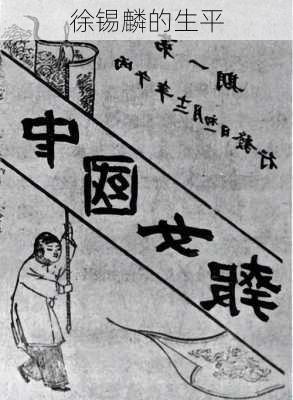 徐锡麟的生平
第一期
丙午年十二月初一日發行
中國女報